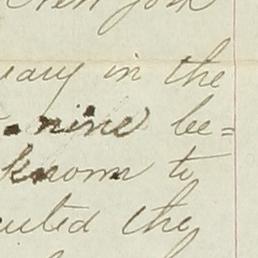 New York
in the
nine be=
known to
cuted the